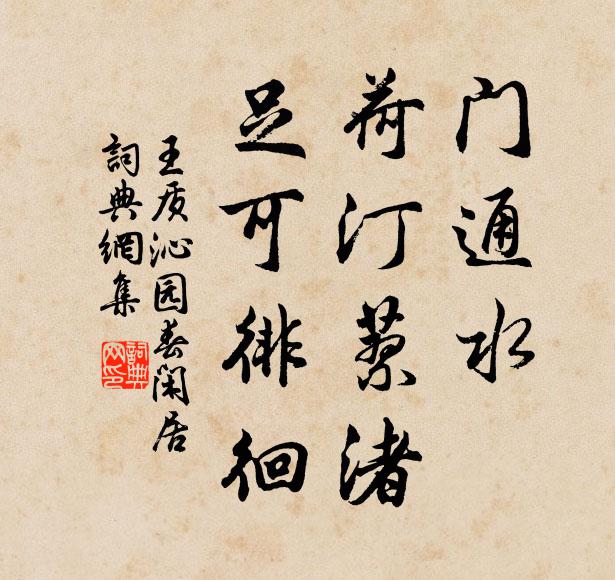 门通水
荷汀蓼渚
足可徘徊
王质沁园春闲居
詞典網集
詞典网印